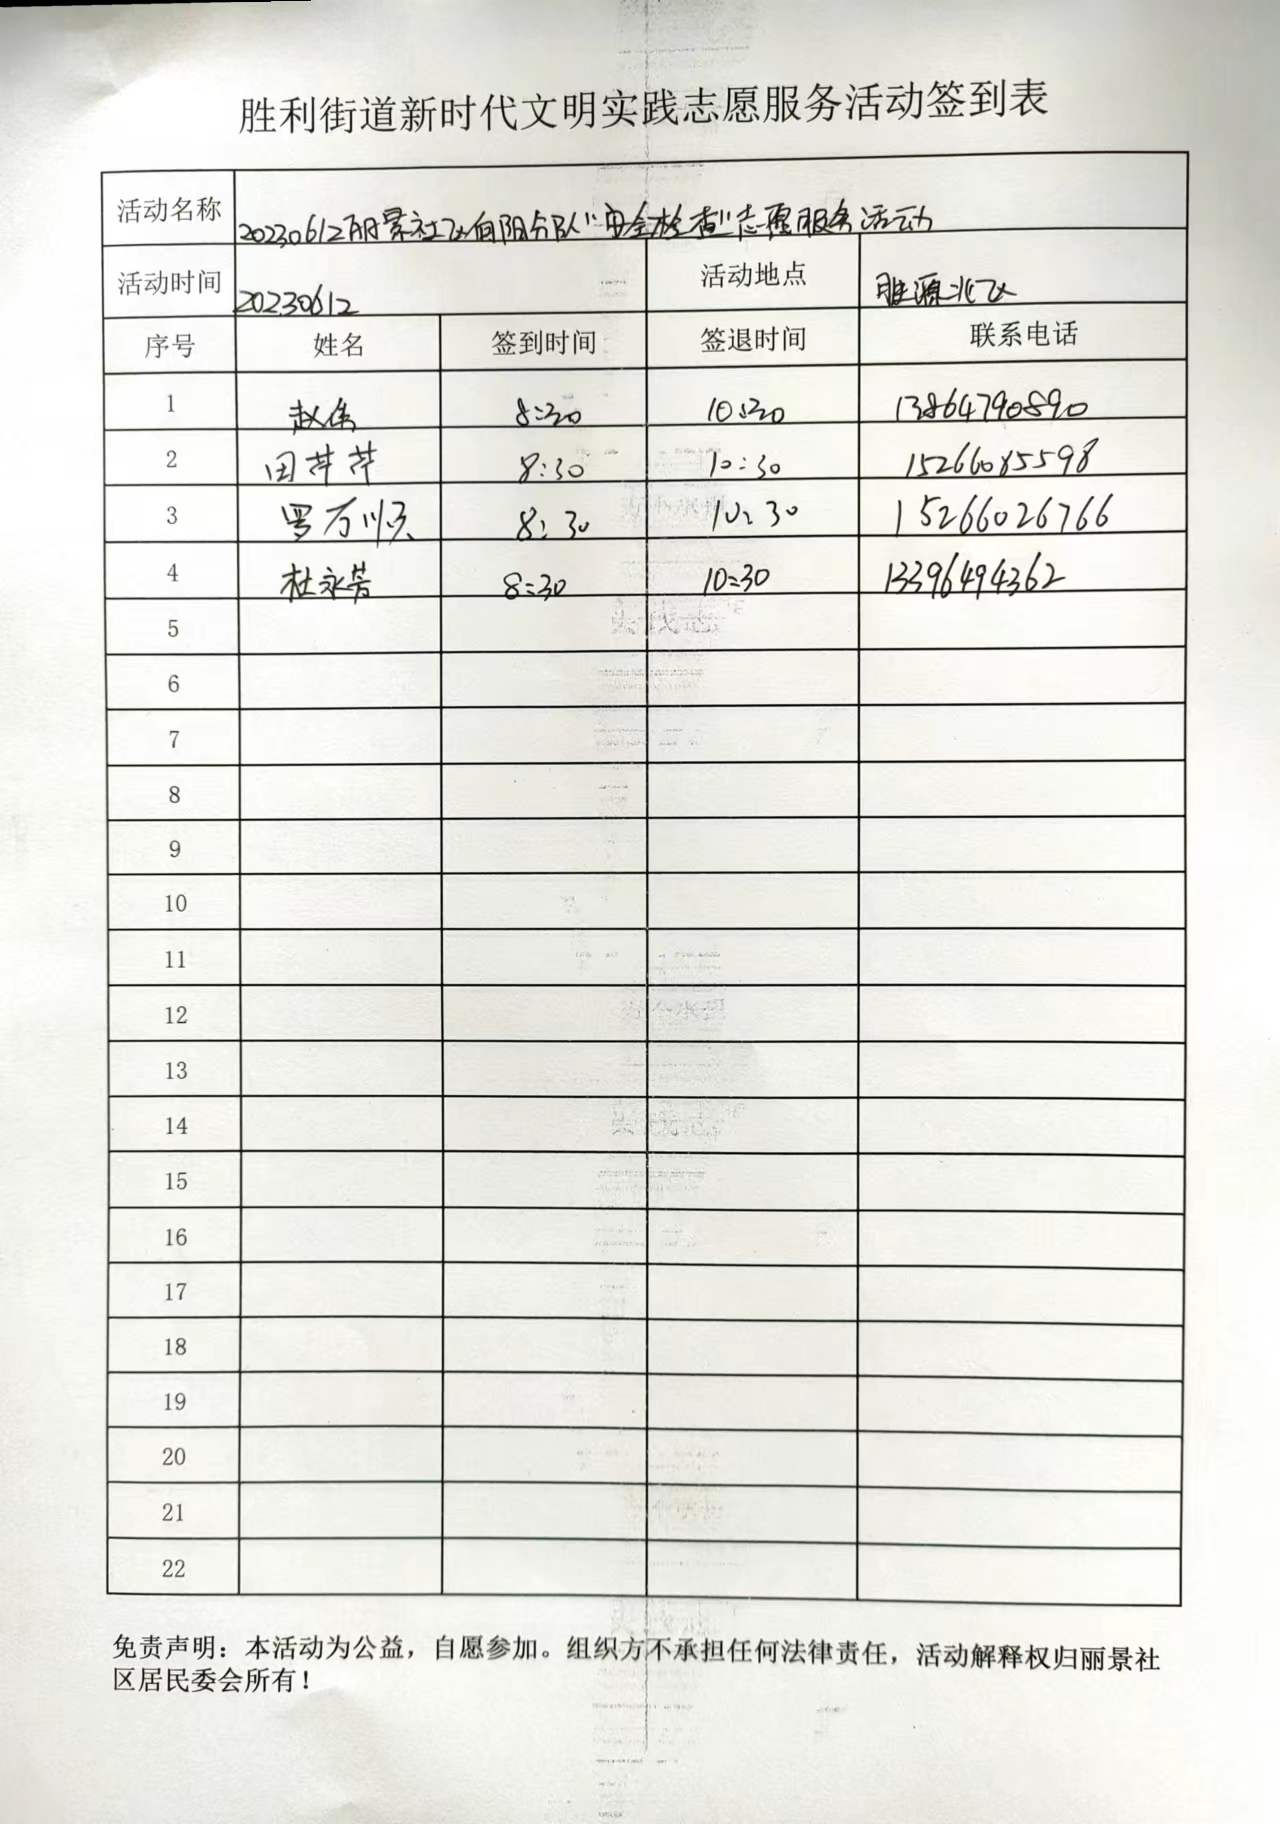 胜利街道新时代文明实践志愿服务活动签到表
活动名称 20230612丽景社区向阳分队"安全检查"志愿服务活动
活动时间 20230612 活动地点 胜源北区
序号 姓名 签到时间 签退时间 联系电话
1 赵 8:30 10:30 13864790890
2 田芹芹 8:30 10:30 15266085598
3 罗万顺 8:30 10:30 15266026766
4 杜永芳 8:30 10:30 13396494362
5
6
7
8
9
10
11
12
13
14
15
16
17
18
19
20
21
22
免责声明：本活动为公益，自愿参加。组织方不承担任何法律责任，活动解释权归丽景社
区居民委会所有！